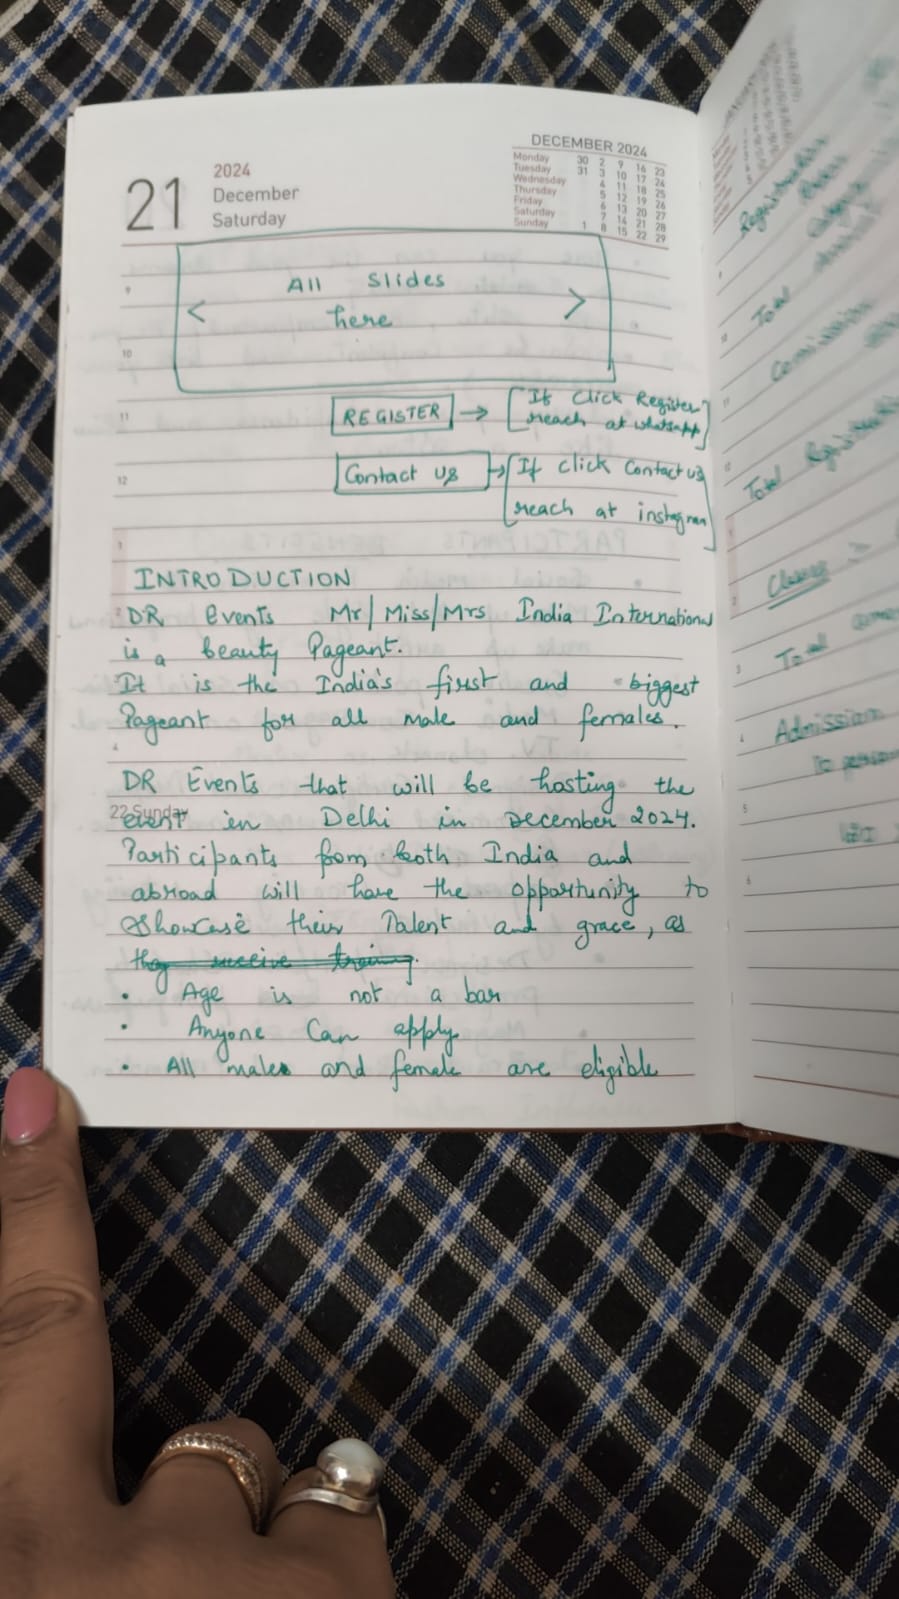 21
2024
December
Saturday
DECEMBER 2024
Monday 30 2 9 16 23
Tuesday 31 3 10 17 24
Wednesday 4 11 18 25
Thursday 5 12 19 26
Friday 6 13 20 27
Saturday 7 14 21 28
Sunday 1 8 15 22 29
9
< All Slides >
here
10
11
REGISTER → [If Click Register
reach at whatsapp]
12
Contact us → [If click Contact us
reach at instagram]
1
INTRODUCTION
2
DR Events Mr/Miss/Mrs India International
is a beauty Pageant.
It is the India's first and biggest
Pageant for all male and females.
4
DR Events that will be hosting the
22 Sunday
event in Delhi in December 2024.
Participants from both India and
abroad will have the opportunity to
showcase their Talent and grace, as
they receive training.
• Age is not a bar
• Anyone Can apply
• All male and female are eligible
Registration
Total
Comission
Total Registration
Classes =
Total
Admission
to person